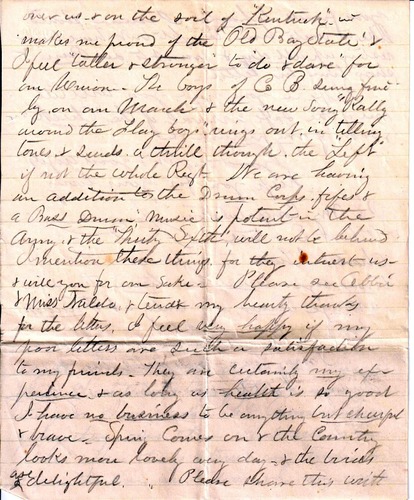 over us - & on the soil of "Kentuck" - it
makes me proud of the "Old Bay State" &
I feel taller & stronger to do & dare for
our Union - The boys of Co B sung fine
ly on our March & the new Song "Rally
around the Flag boys" rings out in telling
tones & sends a thrill through the "Left"
if not the whole Regt. We are having
an addition to the Drum Corps. fifes &
a Bass Drum. Music is potent in the
Army & the "Thirty Sixth" will not be behind
I mention these things for they interest us -
& will you for our Sake - Please see
& Miss & tender my hearty thanks
for the letters. I feel very happy if my
poor letters are such a satisfaction
to my friends. They are certainly my ex
perience & as long as health is so good
I have no business to be anything but cheerful
& brave - Spring comes on & the Country
looks more lovely every day - & the birds
are delightful. Please share this with